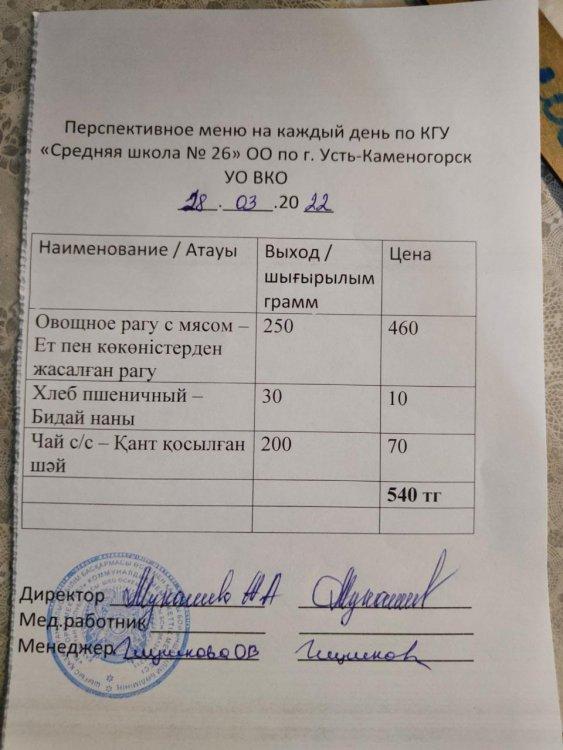 Перспективное меню на каждый день по КГУ
«Средняя школа № 26» ОО по г. Усть-Каменогорск
УО ВКО
28 . 03 .20 22
Наименование / Атауы Выход / шығырылым грамм Цена
Овощное рагу с мясом – 250 460
Ет пен көкөністерден
жасалған рагу
Хлеб пшеничный – 30 10
Бидай наны
Чай с/с – Қант қосылған 200 70
шәй
540 тг
Директор
Мед.работник
Менеджер